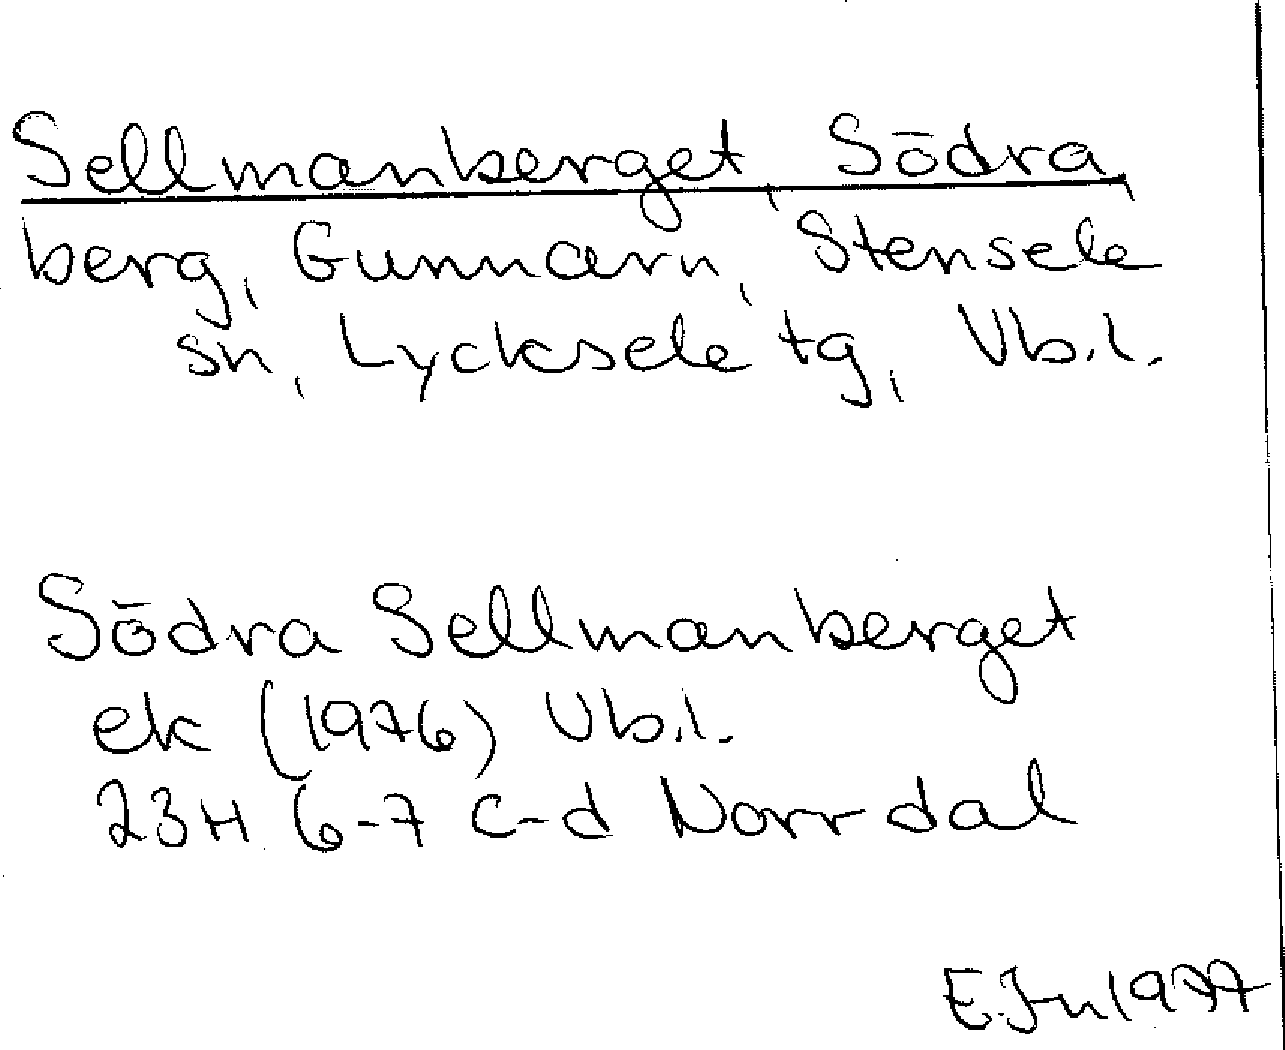 Sellmanberget, Södra,
berg, Gunnarn, Stensele
sn, Lycksele tg, Vb.l.
Södra Sellmanberget
ek (1976) Vb.l.
23H 6-7 c-d Norrdal
E.Jn 1977